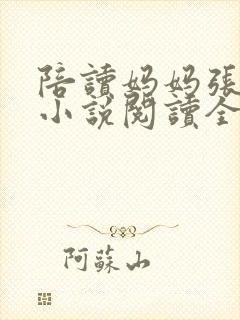 陪讀妈妈張
小說閱讀全
阿蘇山